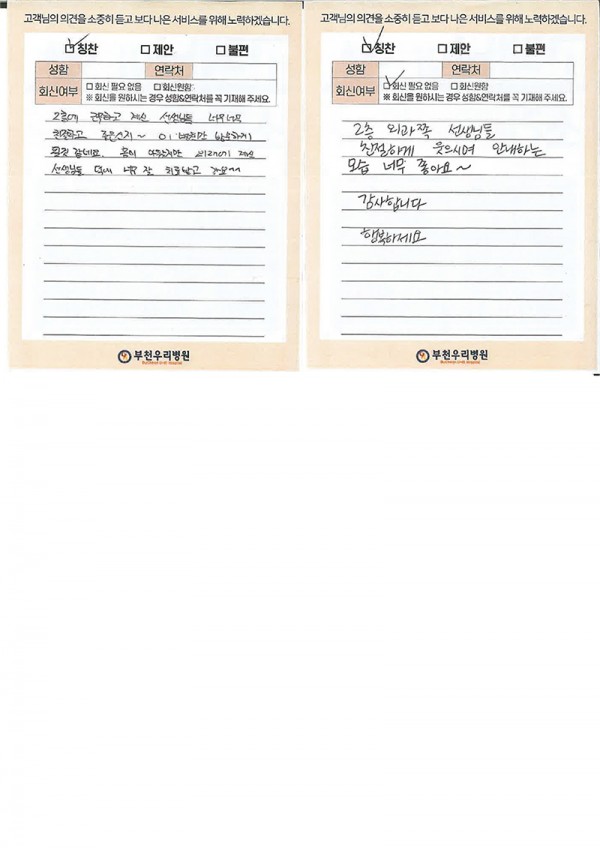 고객님의 의견을 소중히 듣고 보다 나은 서비스를 위해 노력하겠습니다.
☑칭찬 □제안 □불편
성함 연락처
회신여부 □회신 필요 없음 □회신원함
※ 회신을 원하시는 경우 성함&연락처를 꼭 기재해 주세요.
2층에 근무하고 계신 선생님들 너무너무
친절하고 좋은신지~ 이 병원만
될것 같네요. 몸이 계신
선생님들 너무 잘 치료받고 가요^^
부천우리병원
고객님의 의견을 소중히 듣고 보다 나은 서비스를 위해 노력하겠습니다.
☑칭찬 □제안 □불편
성함 연락처
회신여부 ☑회신 필요 없음 □회신원함
※ 회신을 원하시는 경우 성함&연락처를 꼭 기재해 주세요.
2층 외과쪽 선생님들
친절하게 웃으시며 안내하는
모습 너무 좋아요~
감사합니다
행복하세요
부천우리병원